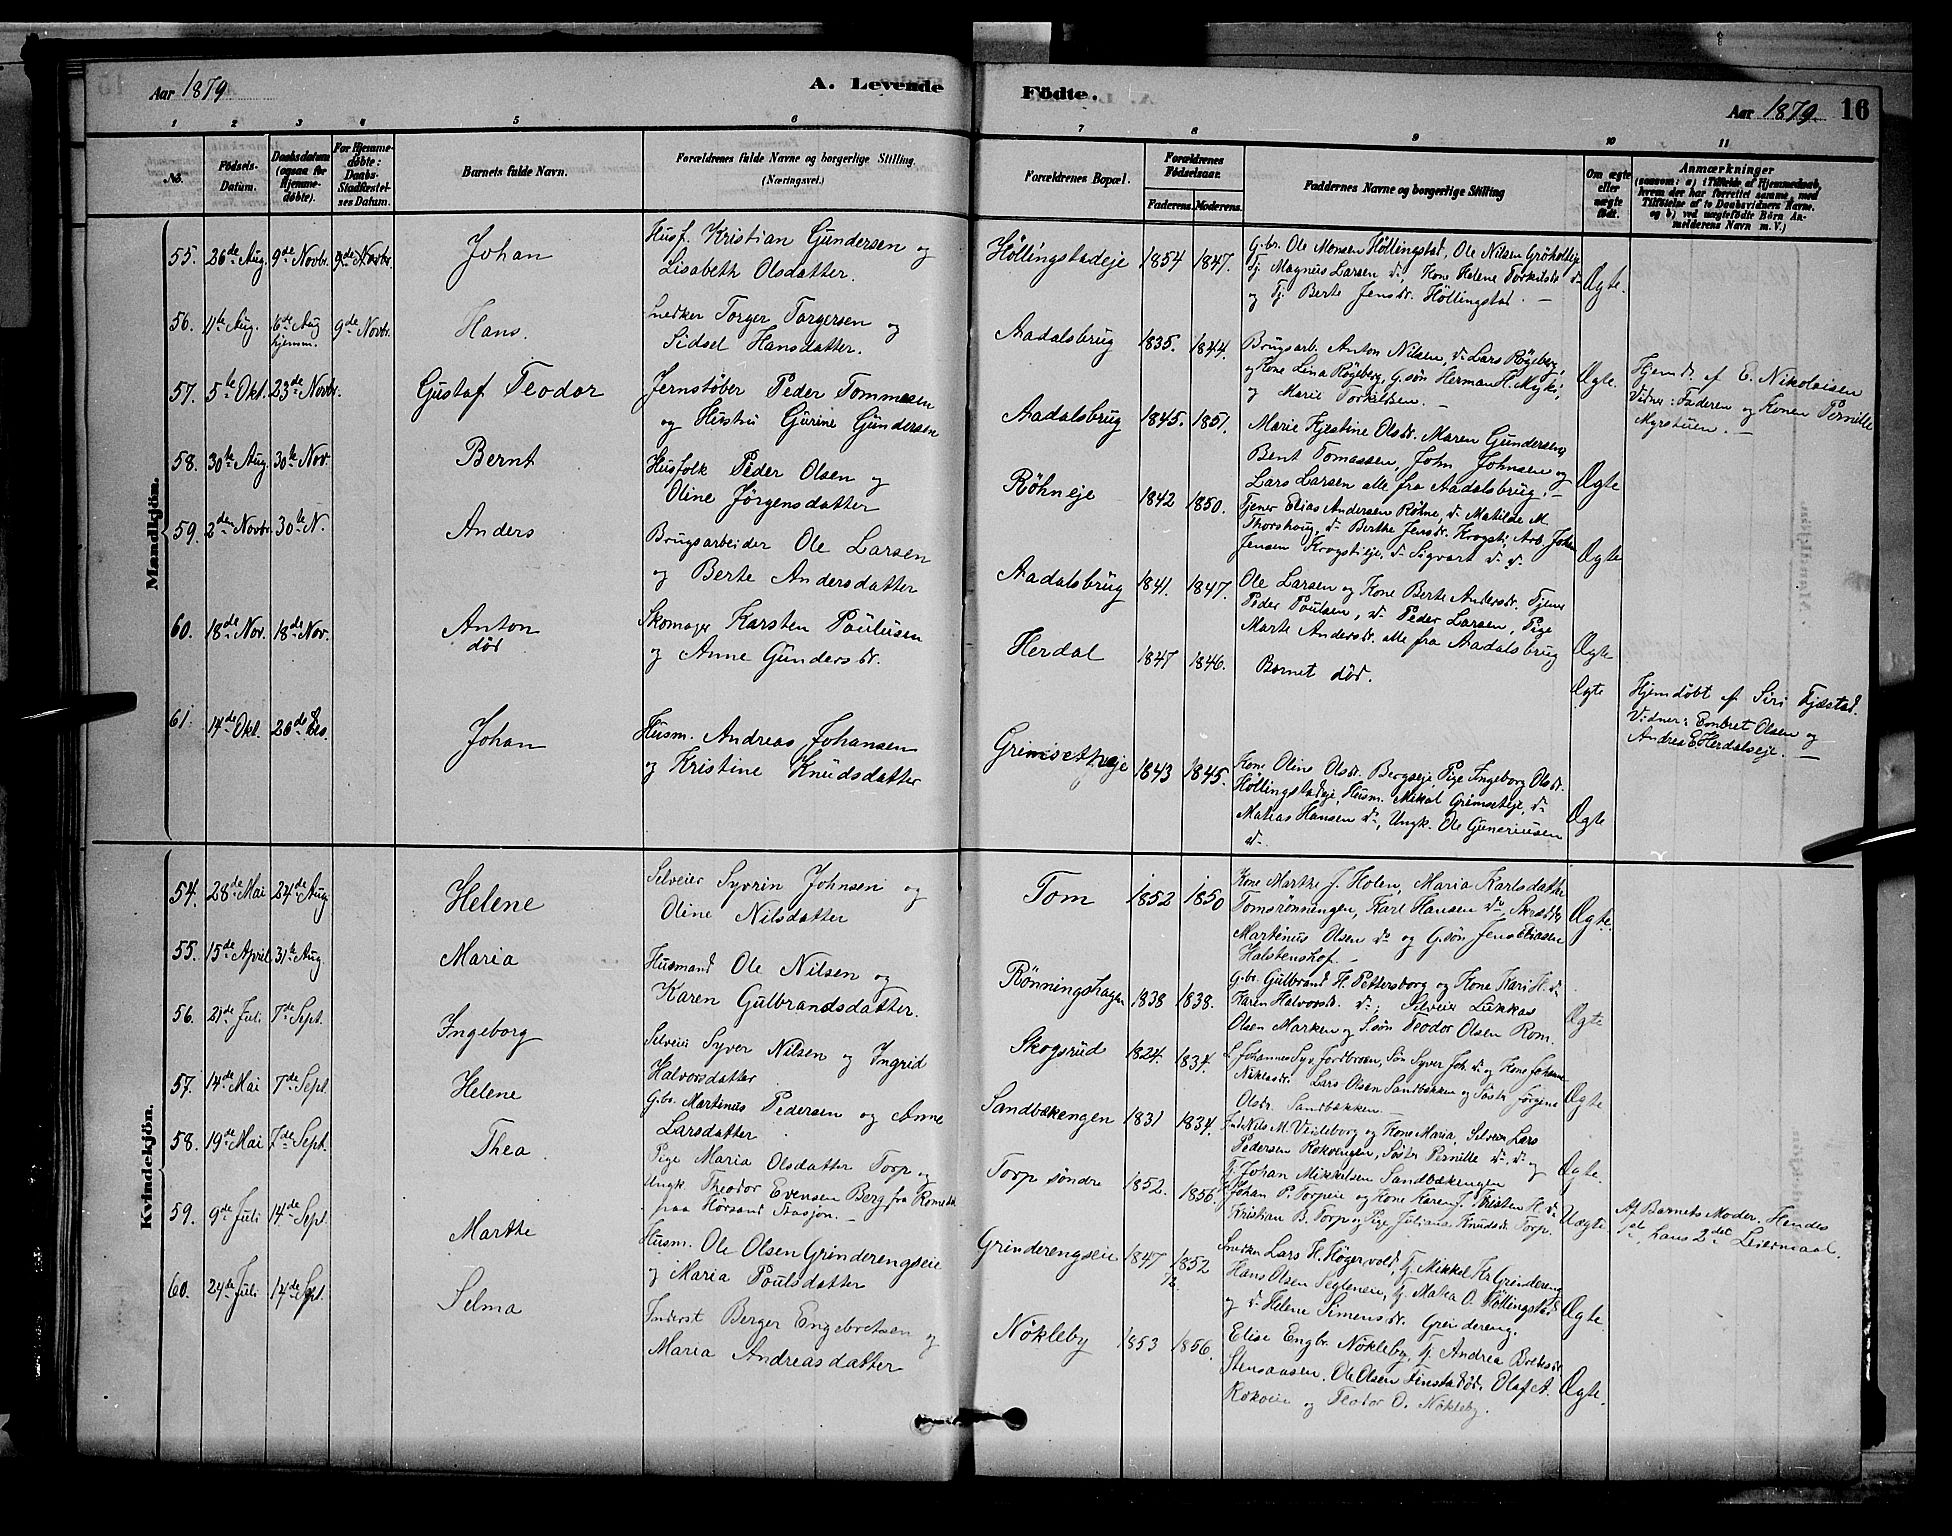 Aar 1879
A. Levende
Födte.
Aar 1879.
16
1 2 3 4 5 6 7 8 9 10 11
No.
Födsels-Datum.
Daabsdatum (ogsaa for Hjemmedöbte).
For Hjemmedöbte: Daabs-Stadfæstelses Datum.
Barnets fulde Navn.
Forældrenes fulde Navne og borgerlige Stilling. (Næringsvei.)
Forældrenes Bopæl.
Forældrenes Födselsaar.
Faderens. Moderens.
Faddernes Navne og borgerlige Stilling
Om ægte eller uægte födt.
Anmærkninger
(saasom: a) i Tilfælde af Hjemmedaab, hvem der har forrettet samme, med Tilföielse af to Daabsvidners Navne. og b) ved uægtefödte Börn Anmelderens Navn m. V.)
Mandkjön.
55. 26de Aug. 9de Novbr. 9de Novbr. Johan
Husf. Kristian Gundersen og
Lisabeth Olsdatter.
Höllingstadeje 1854 1847.
G.br. Ole Monsen Höllingstad, Ole Nilsen
Tj. Magnus Larsen do, Kone Helene Torkilsdr. do
og Tj. Berte Jensdr. Höllingstad. —
Ægte.
56. 11te Aug. 16de Aug hjemm. 9de Novbr. Hans.
Snedker Torger Torgersen og
Sidsel Hansdatter.
Aadalsbrug 1835. 1844.
Brugsarb. Anton Nilsen, do Lars Røgeberg,
og Kone Lina Røgeberg, G.søn Herman H.
og Marie Torkildsen. —
Ægte.
Hjemd. af E. Nikolaisen
Vidner: Faderen og Konen Pernille
Myrstuen. —
57. 5te Okt. 23de Novbr. Gustaf Teodor
Jernstøber Peder Tommesen
og Hustru Gurine Gundersen
Aadalsbrug 1845. 1851.
Marie Kjerstine Olsdr. Maren Gundersen,
Bent Tomassen, John Johnsen og
Lars Larsen alle fra Aadalsbrug. —
Ægte
58. 30te Aug. 30te Nov. Bernt
Husfolk Peder Olsen og
Oline Jørgensdatter
Röhneje 1842 1850.
Tjener Elias Andersen Röhne, do Matilde M.
Thorshaug, do Berthe Jensdr. Krogsti, Arb. Johan
Jensen Krogstieje, do Sigvart do do
Ægte
59. 2den Novbr. 30te N. Anders
Brugsarbeider Ole Larsen
og Berte Andersdatter
Aadalsbrug 1841. 1847.
Ole Larsen og Kone Berte Andersdr. Tjener
Peder Poulsen, do Peder Larsen, Pige
Marte Andersdr. alle fra Aadalsbrug
Ægte
60. 18de Nov. 18de Nov. Anton
død
Skomager Karsten Paulusen
og Anne Gundersdr.
Herdal 1847 1846.
Barnet død.
Ægte
Hjemdøbt af Siri Fjæstad.
Vidner: Embret Olsen og
Andrea E Herdalseje. —
61. 14de Okt. 26de Des. Johan
Husm. Andreas Johansen
og Kristine Knudsdatter
Grimsetheje 1843 1845.
Kone Oline Olsdr. Bergseje, Pige Ingeborg Olsdr.
Höllingstadeje, Husm. Mikal Grimseteje, do
Matias Hansen do, Ungk. Ole Guneriusen
do
Ægte
Kvindekjön.
54. 28de Mai 24de Aug Helene
Selveier Syvrin Johnsen og
Oline Nilsdatter
Tom 1852 1850
Kone Marthe J. Holen, Maria Karlsdatter
Tomsrønningen, Karl Hansen do,
Martinus Olsen do og G.søn Jens
Halstenshof. —
Ægte.
55. 15de April 31te Aug. Maria
Husmand Ole Nilsen og
Karen Gulbrandsdatter.
Rönningshagen 1838 1838.
G.br. Gulbrand H. Pettersborg og Kone Kari H. do
Karen Halvorsdr. do, Selveier Lukkas
Olsen Marken og S.søn Teodor Olsen Rom.
Ægte
56. 21de Juli 7de Sept. Ingeborg
Selveier Syver Nilsen og Ingrid
Halvorsdatter
Skogsrud 1824. 1834.
S. Johannes Syv. Jordbroen, Søn Syver Joh. do og Kone Johanne
Niklasdr. Lars Olsen Sandbækken og Søster Jørgine
Olsdr. Sandbækken. —
Ægte
57. 14de Mai 7de Sept. Helene
G.br. Martinus Pedersen og Anne
Larsdatter
Sandbækengen 1831 1834.
Ind. Nils M. Veideborg og Kone Maria, Selveier Lars
Pedersen Rokoengen, Søster Pernille do, do og
Tj. Johan Mikkelsen Sandbækengen
Ægte.
58. 19de Mai 7de Sept. Thea
Pige Maria Olsdatter Torp og
Ungk. Theodor Evensen Berg fra Romedal
paa Hörsand Stasjon. —
Torp søndre 1852. 1856.
Johan P. Torpeie og Kone Karen J. Kristen H. do
Kristian B. Torp og Pige Juliane Knudsdr. Torp.
Uægte
Af Barnets Moder. Hendes
1ste, hans 2det Leiermaal.
59. 9de Juli 14de Sept. Marthe
Husm. Ole Olsen Grinderengseie
og Maria Poulsdatter
Grinderengseie 1847 1852
Snedker Lars H. Høgervold, Tj. Mikkel Kr. Grindereng
Hans Olsen Segleneie, Tj. Matea O. Höllingstad
og do Helene Simensdr. Grindereng.
Ægte
60. 24de Juli 14de Sept. Selma
Inderst Berger Engebretsen og
Maria Andreasdatter
Nökleby 1853 1856.
Elise Engbr. Nökleby, Tj. Andrea
Stensaasen, Ole Olsen Finstad, Olaf A.
Rokoeie og Teodor O. Nökleby.
Ægte.